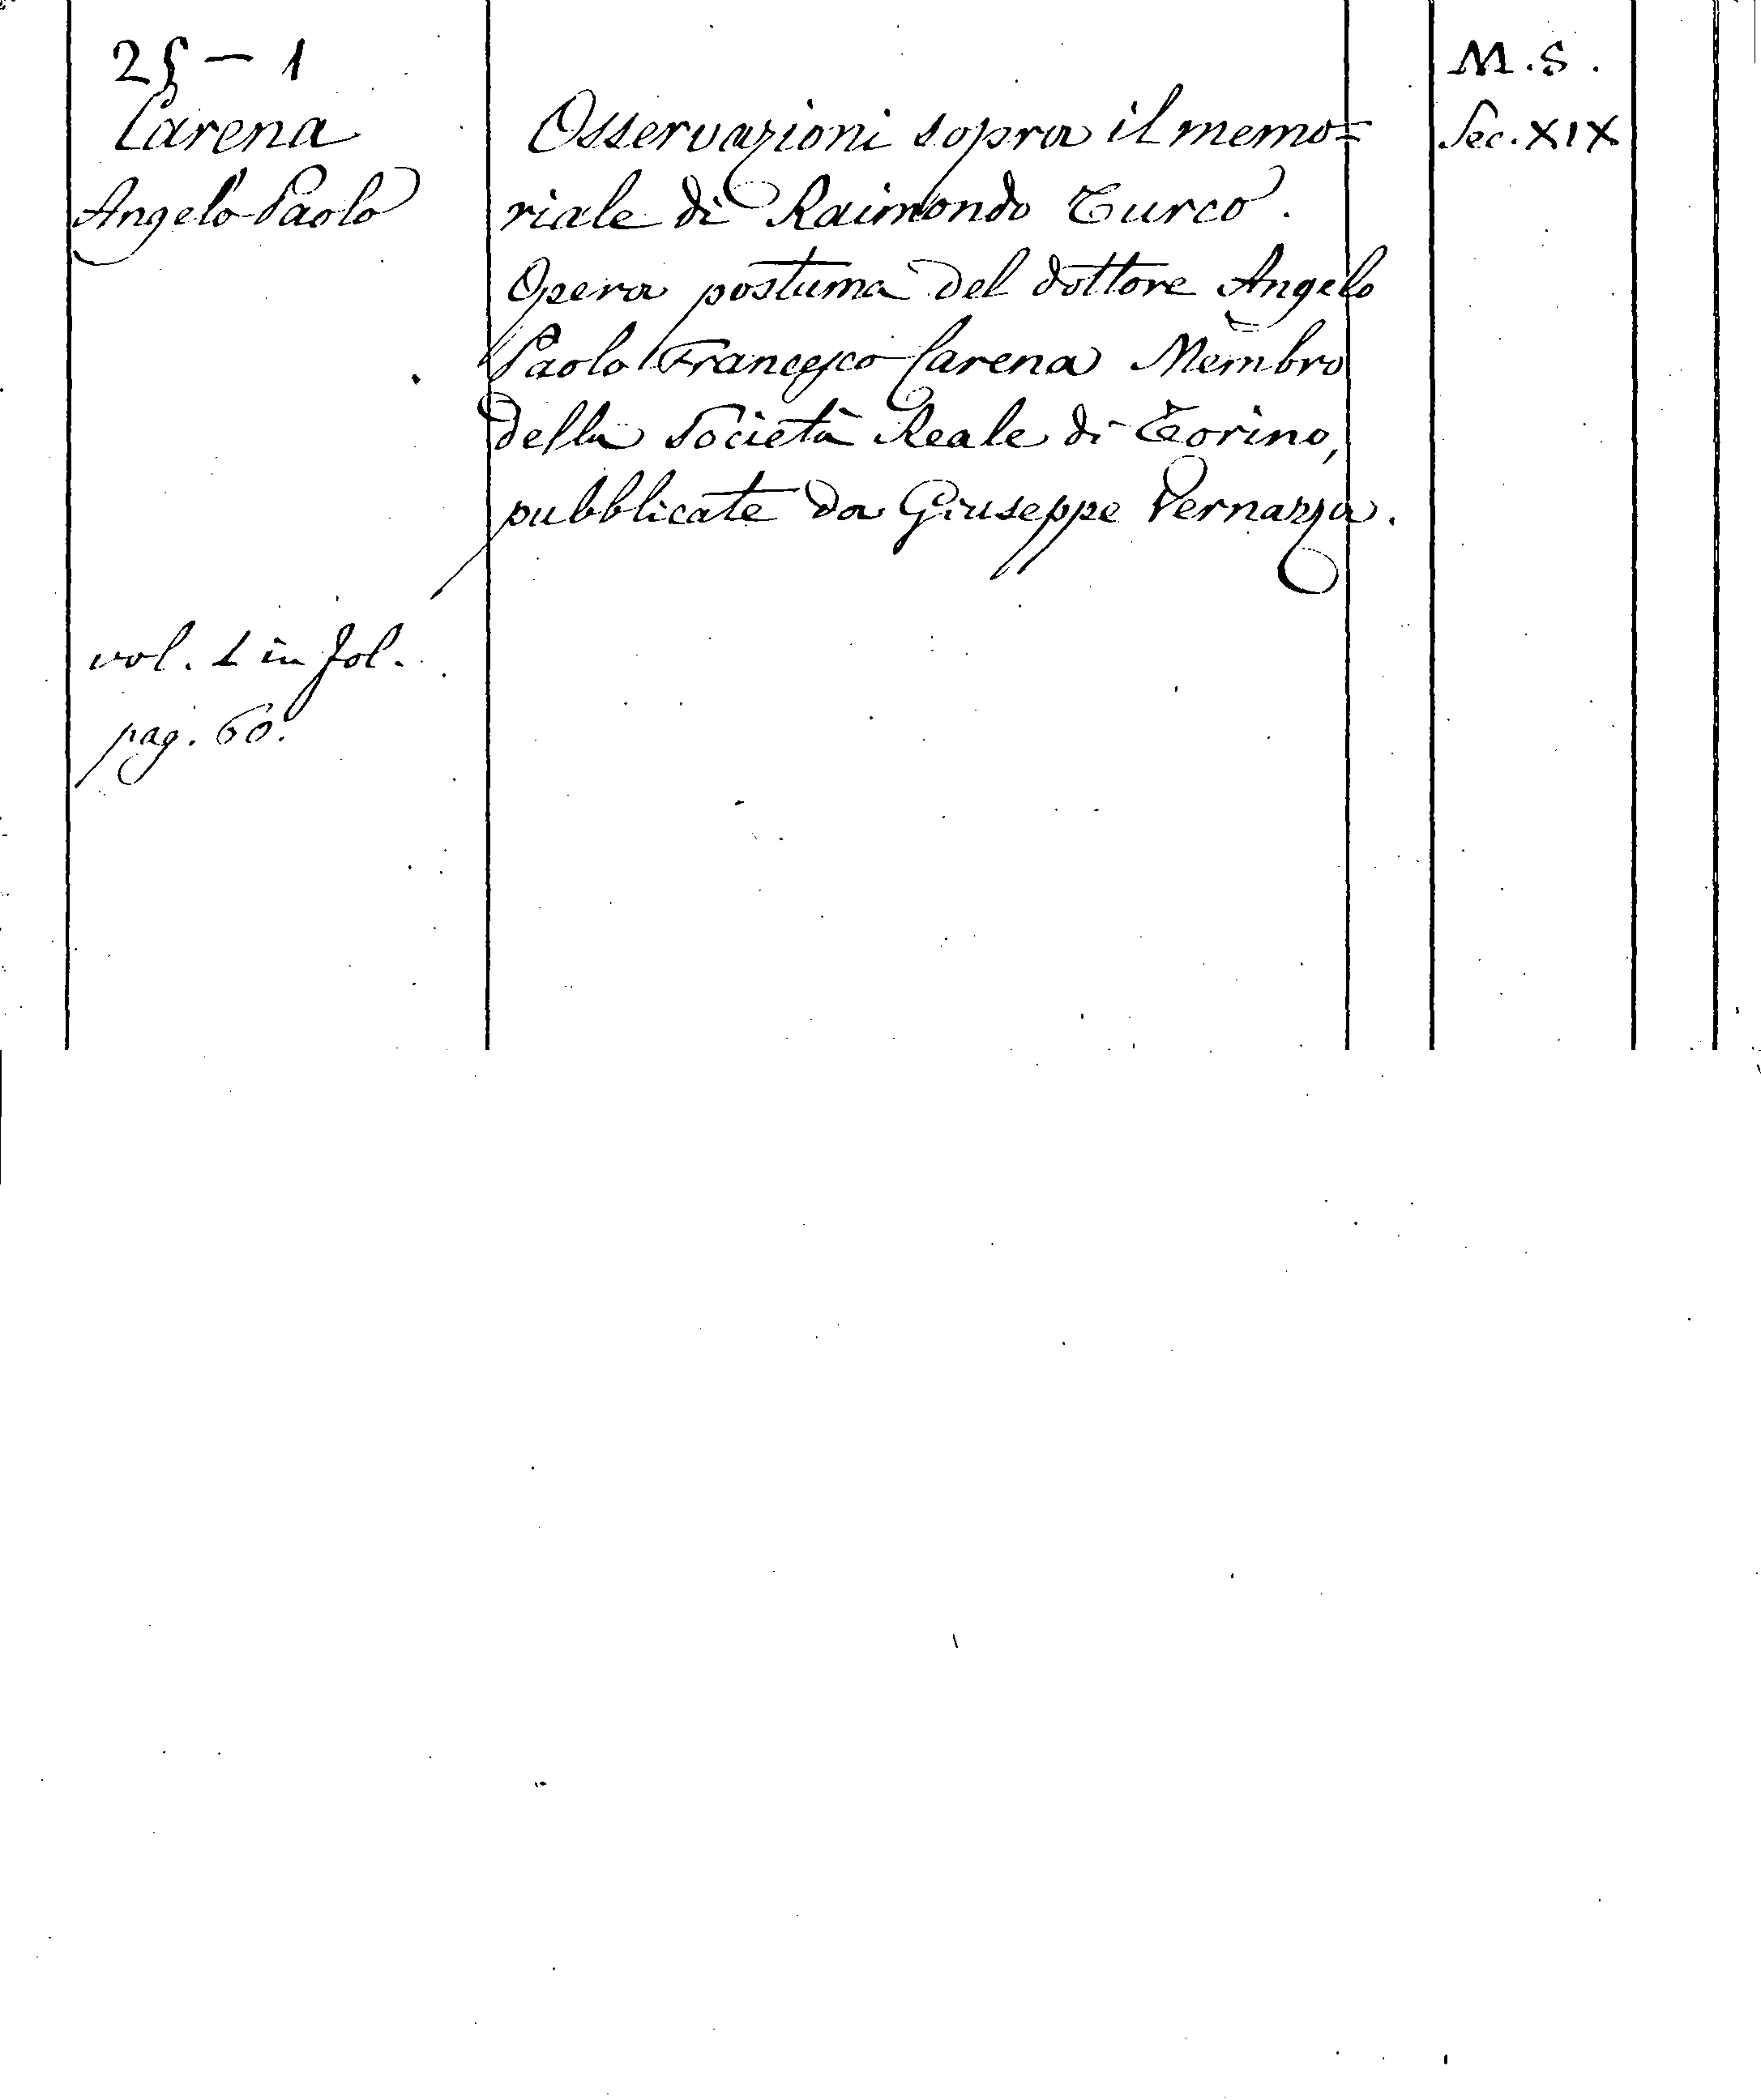 25 - 1
Carena
Angelo Paolo
vol. 1 in fol.
pag. 60.
Osservazioni sopra il memo=
riale di Raimondo Turco.
Opera postuma del dottore Angelo
Paolo Francesco Carena Membro
della Società Reale di Torino,
pubblicate da Giuseppe Vernazza.
M.S.
Sec. XIX